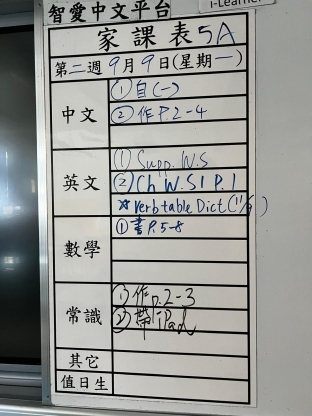 智愛中文平台
i-Learner
家課表 5A
第二週 9月9日(星期一)
中文
① 自(一)
② 作 P.2-4
英文
① Supp. W.S
② Ch W.S1 P.1
* Verb table Dict (11/9)
數學
① 書 P.5-8
常識
① 作 p.2-3
② 帶 iPad
其它
值日生